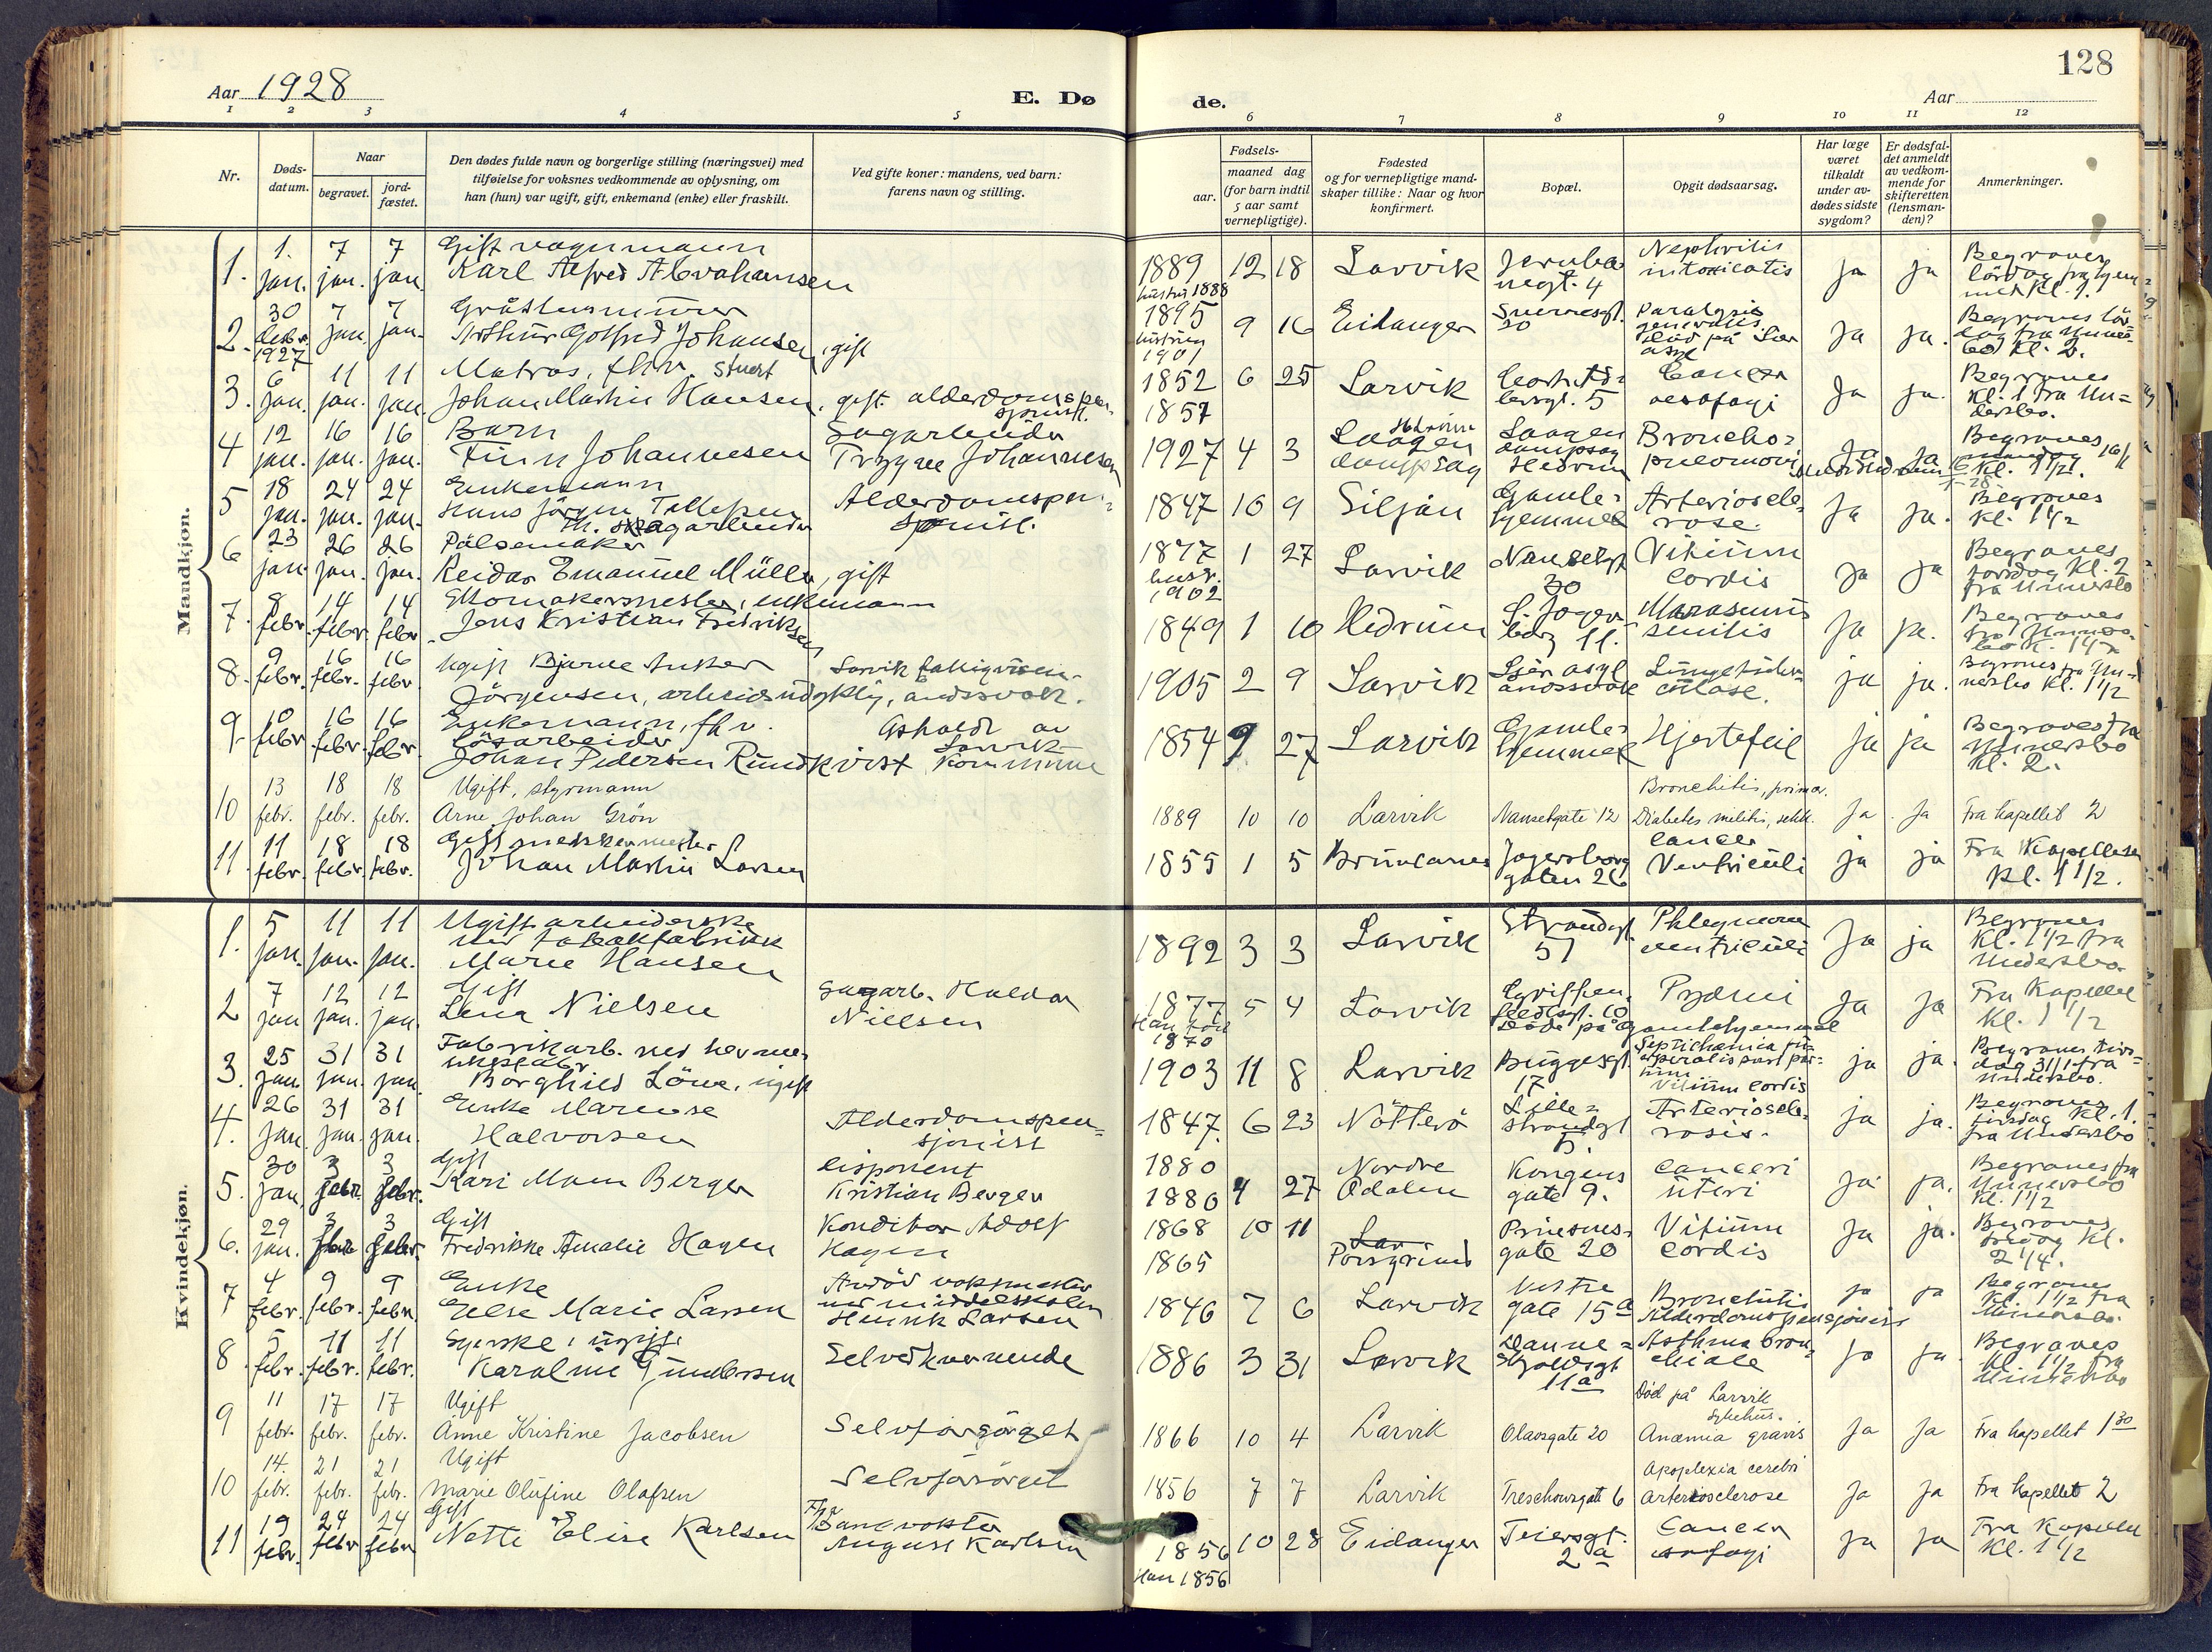 128
Aar 1928
E. Dø
de.
Aar
1 2 3 4 5 6 7 8 9 10 11 12
Nr.
Døds-
datum.
Naar
begravet.
jord-
fæstet.
Den dødes fulde navn og borgerlige stilling (næringsvei) med
tilføielse for voksnes vedkommende av oplysning, om
han (hun) var ugift, gift, enkemand (enke) eller fraskilt.
Ved gifte koner: mandens, ved barn:
farens navn og stilling.
Fødsels-
aar.
maaned dag
(for barn indtil
5 aar samt
vernepligtige).
Fødested
og for vernepligtige mand-
skaper tillike: Naar og hvor
konfirmert.
Bopæl.
Opgit dødsaarsag.
Har læge
været
tilkaldt
under av-
dødes sidste
sygdom?
Er dødsfal-
det anmeldt
av vedkom-
mende for
skifteretten
(lensman-
den)?
Anmerkninger.
Mandkjøn.
1. 1. jan. 7 jan. 7 jan.
Gift vognmann
Karl Alfred Abrahamsen
1889 12 18 Larvik
Nephritis
intoxicatis
ja ja
Begraves
lördag fra hjem-
met kl. 1.
hustru 1888
2. 30 desbr. 1927 7 jan. 7 jan.
Arthur Gotfred Johansen, gift
1895 9 16 Eidanger
hustru
1901
Paralysis
generalis
ja ja.
kl. 2.
3. 6 jan. 11 jan. 11 jan.
Matros, fhv. stuert
Johan Martin Hansen, gift. alderdomspen-
sjonist.
1852 6 25 Larvik
1857
Cancer
oesofagi
ja ja.
Begraves
kl. 1 fra Un-
dersbo.
4 12 jan. 16 jan. 16 jan.
Barn
Finn Johannesen
Sagarbeider
Trygve Johannesen
1927 4 3
Laagen
dampsag
Laagen
dampsag
Hedrum
Broncho-
pneumoni
Ja Ja
Begraves
kl. 1 1/2.
5 18 jan. 24 jan. 24 jan.
Enkemann
Hans Jörgen Tollefsen
fh. sagarbeider
Alderdomspen-
sjonist.
1847 10 9 Siljan
Gamle-
hjemmet
Arterioscle-
rose.
Ja Ja.
Begraves
kl. 1 1/2
6 23 jan. 26 jan. 26 jan.
Pölsemaker
Reidar Emanuel Müller, gift
1877 1 27 Larvik
hustr.
1902
Nansetgt
30
Vitium
cordis
ja ja
Begraves
torsdag kl. 2
fra Undersbo
7. 8 febr. 14 febr. 14 febr.
Skomakermester, enkemann
Jens Kristian Fredriksen
1849 1 10 Hedrum
Marasmus
senilis
ja ja.
Begraves
8. 9 febr. 16 febr. 16 febr.
Ugift Bjarne Anker
Jörgensen, arbeidsudyktig, andssvak.
1905 2 9 Larvik
ja ja.
kl. 1 1/2
9 10 febr. 16 febr. 16 febr.
Enkemann, fhv.
lösarbeider
Johan Pedersen Rundkvist
Larvik
kommune
1854 9 27 Larvik
Gamle-
hjemmet
Hjertefeil
ja ja
Begraves fra
Undersbo
kl. 2.
10 13 febr. 18 febr. 18 febr.
Ugift, styrmann
Arne Johan Grön
1889 10 10 Larvik Nansetgate 12
Bronchitis, primær.
Diabetes militis, sekk.
Ja Ja Fra kapellet 2
11. 11 febr. 18 febr. 18 febr.
Johan Martin Larsen
1855 1 5 Brunlanes
Jegersborg
gaten 26
Cancer
Ventriculi
ja ja
Fra Kapellet
kl. 1 1/2.
Kvindekjøn.
1. 5 jan. 11 jan. 11 jan.
Ugift arbeiderske
ved tobakfabrikk
Marie Hansen
1892 3 3 Larvik
Strandgt.
51
Phlegmone
ventriculi
Ja ja
Begraves
kl. 1 1/2 fra
Undersbo.
2 7 jan 12 jan. 12 jan.
Gift
Lena Nielsen
Sagarb. Haldor
Nielsen
1877 5 4 Larvik
Han född
1870
Ja Ja
Fra Kapellet
kl. 1 1/2
3. 25 jan. 31 jan. 31 jan
Borghild Löve, ugift
1903 11 8 Larvik
Buggesgt.
17
Vitium cordis
ja ja.
Undersbo.
4. 26 jan. 31 jan. 31 jan.
Enke Marense
Halvorsen
Alderdomspen-
sjonist
1847. 6 23 Nötterö
Lille-
strandgt
5
Arterioscle-
rosis.
ja ja.
Begraves
tirsdag kl. 1.
fra Undersbo
5. 30 jan 3 febr. 3 febr.
Gift
Kari Moen Berger
Disponent
Kristian Berger
1880
1880 4 27
Nordre
Odalen
Kongens
gate 9.
Canceri
uteri
ja ja.
Begraves fra
Undersbo
kl. 1 1/2
6. 29 jan. 3 febr. 3 febr.
Gift
Fredrikke Amalie Hagen
Konditor Adolf
Hagen
1868 10 11
1865
Lar
Porsgrund
Prinsens-
gate 20
Vitium
cordis
Ja ja.
Begraves
fredag kl.
2 1/4.
7 4 febr. 9 febr. 9 febr.
Enke
Else Marie Larsen
Avdöd vaktmester
ved middelskolen
Henrik Larsen
1846 7 6 Larvik
Vestre
gate 15a
Bronchitis
Alderdomspensjonist
ja ja
Begraves
kl. 1 1/2 fra
Undersbo.
8 5 febr. 11 febr. 11 febr.
Syerske, ugift
Karoline Gundersen
Selverhvervende
1886 3 31 Larvik
Danne-
skjoldsgt
11a
Asthma bron-
chiale
ja ja
Begraves
kl. 1 1/2 fra
Undersbo
9 11 febr. 17 febr. 17 febr.
Ugift
Anne Kristine Jacobsen
Selvforsörget
1866 10 4 Larvik Olavsgate 20
Död på Larvik
Sykehus.
Anæmia gravis
Ja Ja Fra kapellet 1 30
10 14. febr. 21 febr. 21 febr.
Ugift
Marie Olufine Olafsen
Selvforsörget
1856 7 7 Larvik Treschowsgate 6
Apoplexia cerebri
Arteriosclerose
Ja Ja Fra kapellet 2
11 19 febr. 24 febr 24 febr
Gift
Nette Elise Karlsen
Fhv.
Banevokter
August Karlsen
1856 10 28 Eidanger
Han 1856
Teiersgt.
2 a
Cancer
Ja Ja
Fra Kapellet
kl. 1 1/2